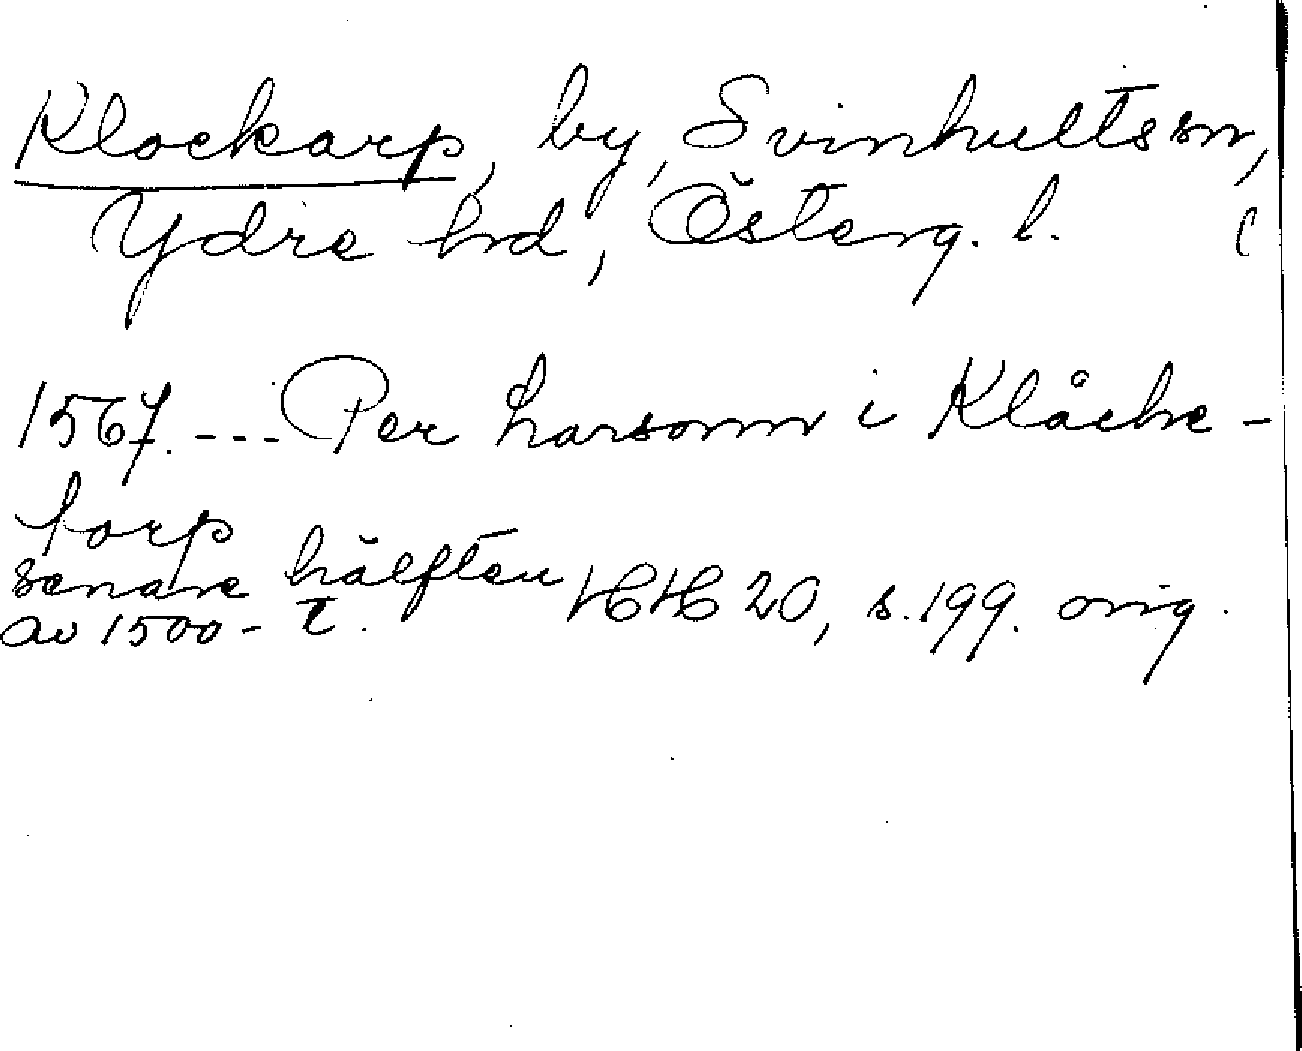 Klockarp, by, Svinhults sn,
Ydre hrd, Österg. l.
1567. --- Per harsonn i Klåcke-
torp
senare hälften
av 1500-t. HH 20, s. 199. orig.